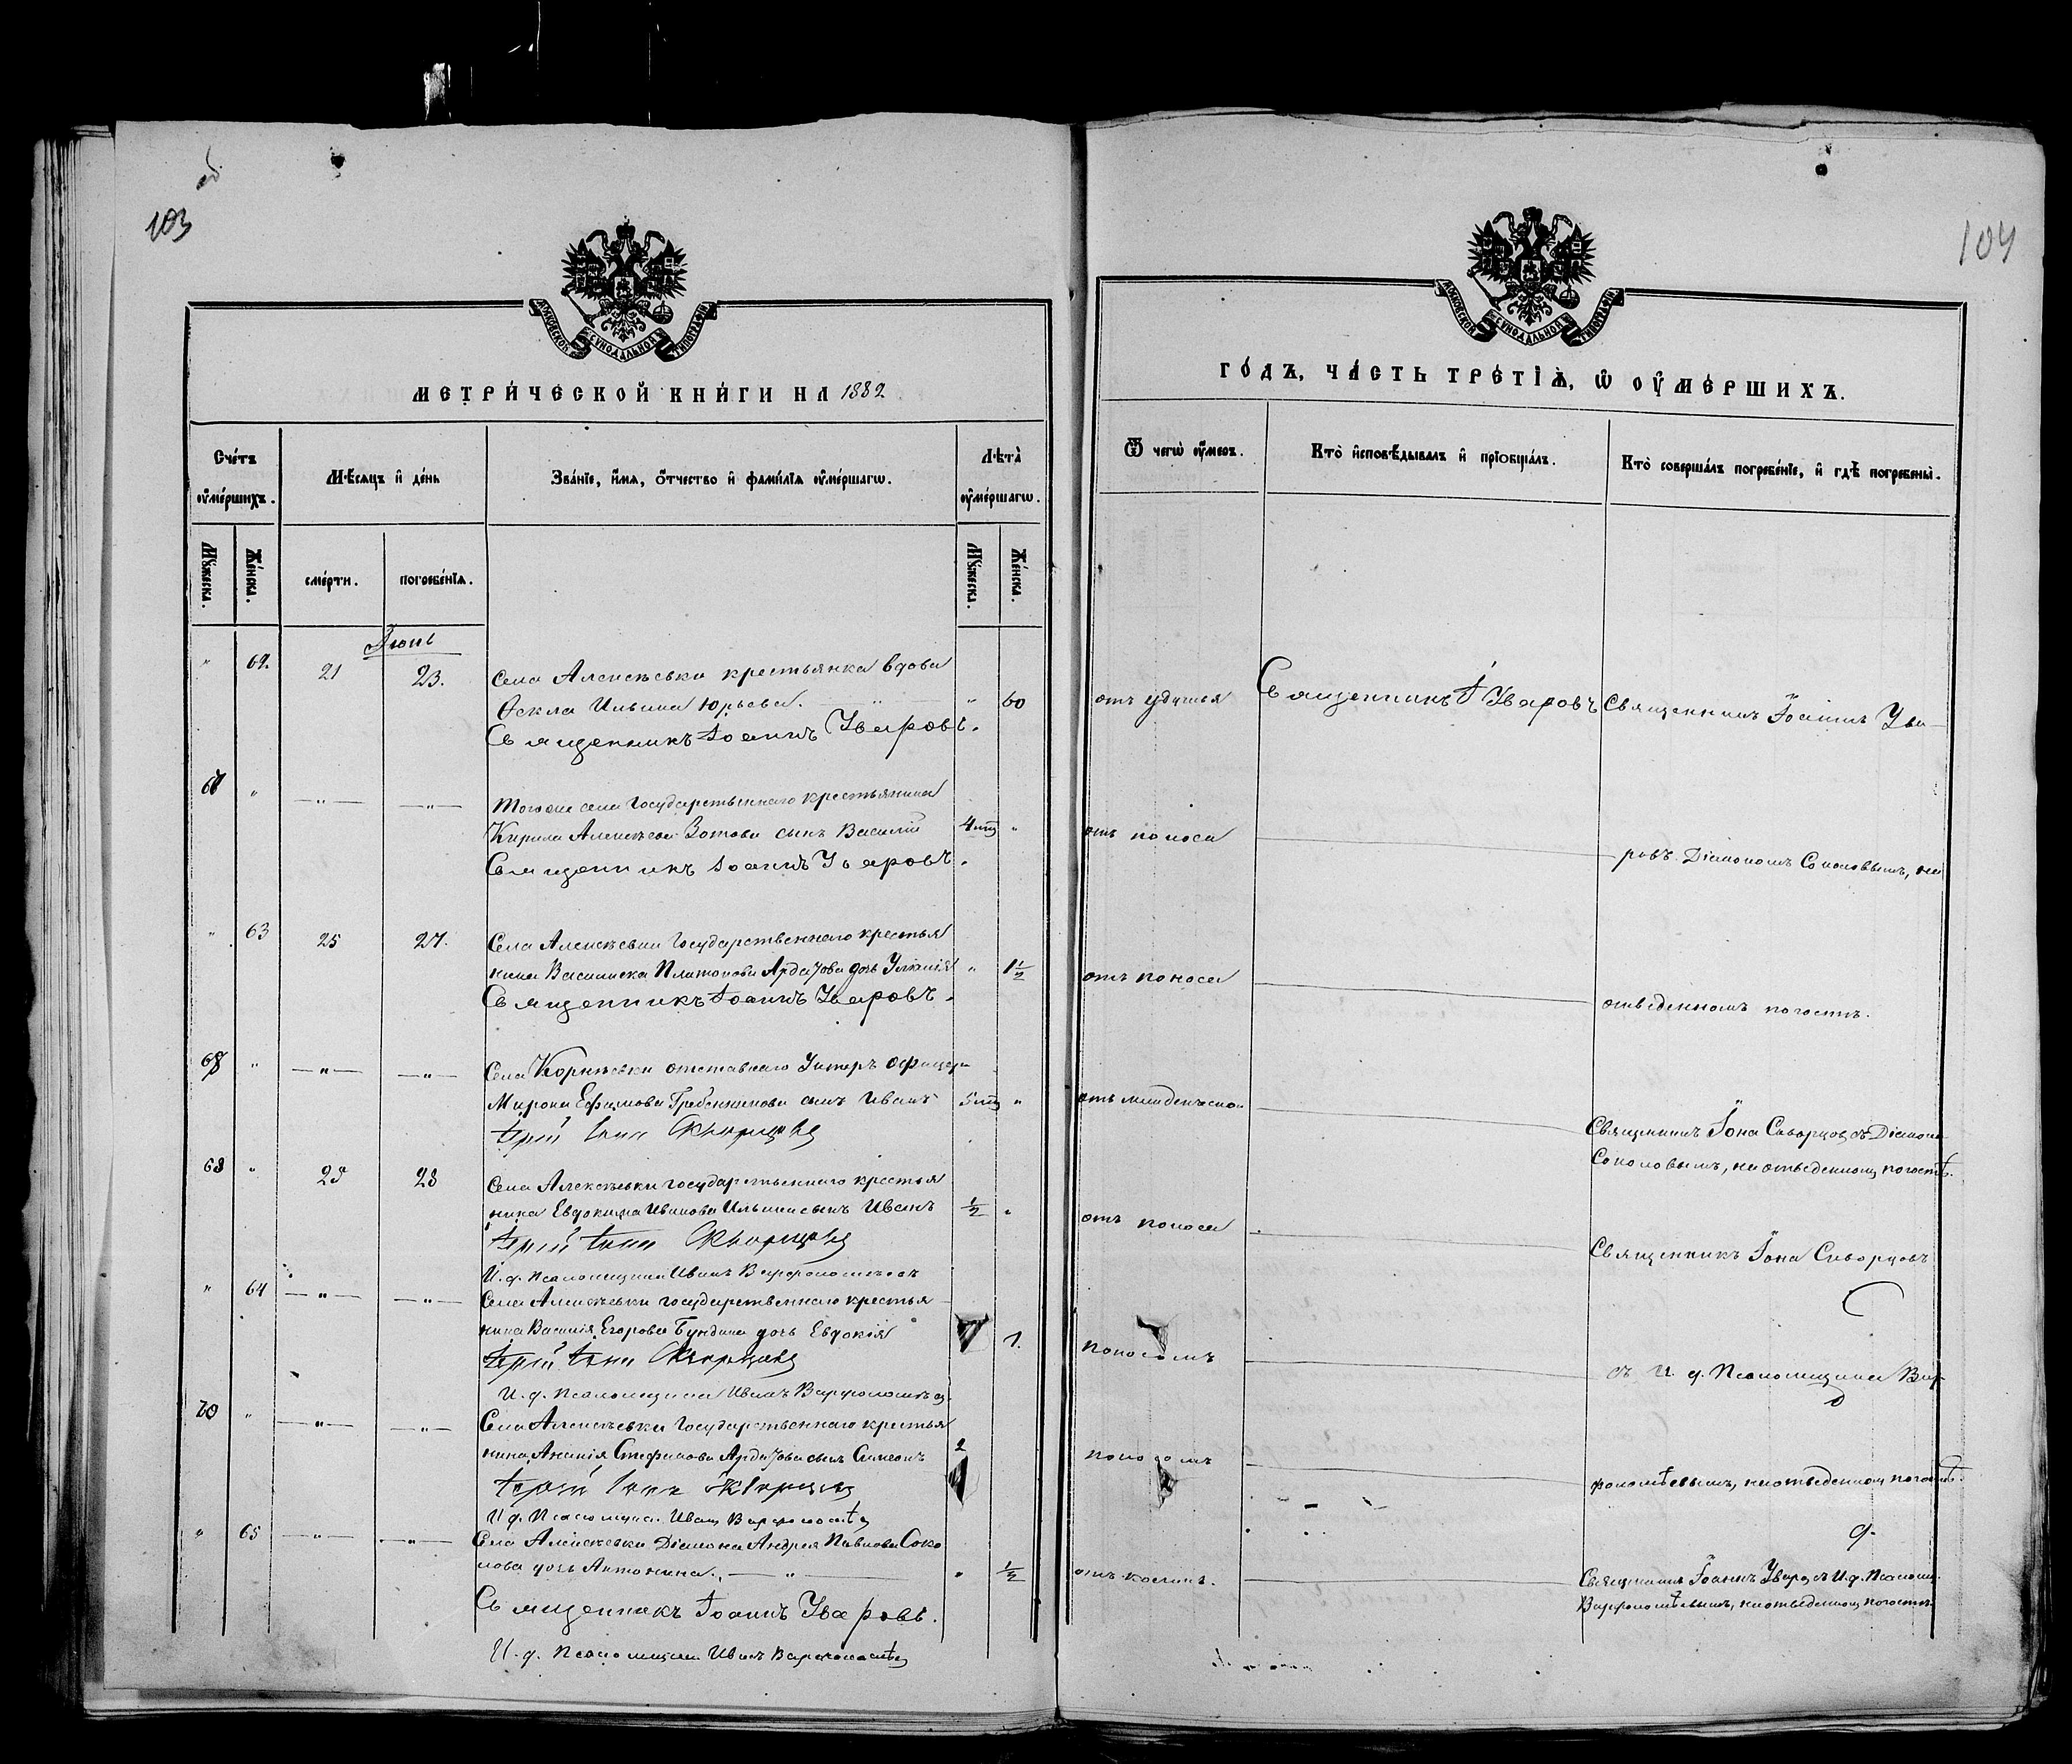 103
МОСКОВСКОЙ СѴНОДАЛЬНОЙ ТИПОГРАФІИ
МЕТРИЧЕСКОЙ КНИГИ НА 1882
Счетъ умершихъ.
Мѣсяцъ и день
Званіе, имя, отчество и фамилія умершаго.
Лѣта умершаго.
Мужеска.
Женска.
смерти.
погребенія.
Мужеска.
Женска.
Іюнь
" 62. 21 23. Села Алексѣевки крестьянка вдова
Ѳекла Ильина Юрьева. " " 60
Священникъ Іоаннъ Уваровъ.
" — " — — " — Тогоже села Государственнаго крестьянина
Кирила Алексѣева Зотова сынъ Василій 4 мц "
Священникъ Іоаннъ Уваровъ.
" 63 25 27. Села Алексѣевки Государственнаго крестья
нина Василиска Платонова Ардатова дочь Улянія " 1 1/2
Священникъ Іоаннъ Уваровъ.
" — " — — " — Села Корнѣевки отставнаго Унтеръ Офицера
Мирона Ефимова Гребенникова сынъ Иванъ 5 мц "
Іерей Іона Скворцовъ
" 28 Села Алексѣевки государственнаго крестья
нина Евдокима Иванова Ильина сынъ Иванъ 1/2 "
Іерей Іона Скворцовъ
И. д. Псаломщика Иванъ Варфоломѣевъ
" 64 — " — — " — Села Алексѣевки государственнаго крестья
нина Василія Егорова Бундина дочь Евдокія 1.
Іерей Іона Скворцовъ
И. д. Псаломщика Иванъ Варфоломѣевъ
70 " — " — — " — Села Алексѣевки Государственнаго крестья
нина Ананія Стефанова Ардатова сынъ Симеонъ 2
Іерей Іона Скворцовъ
И. д. Псаломщика Иванъ Варфоломѣевъ
" 65 — " — — " — Села Алексѣевки Діакона Андрея Павлова Соко
лова дочь Антонина. — " — " 1/2
Священникъ Іоаннъ Уваровъ.
И. д. Псаломщика Иванъ Варфоломѣевъ
104
МОСКОВСКОЙ СѴНОДАЛЬНОЙ ТИПОГРАФІИ
ГОДЪ, ЧАСТЬ ТРЕТІЯ, Ѡ УМЕРШИХЪ.
Ѿ чегѡ умеръ.
Кто исповѣдывалъ и пріобщалъ.
Кто совершалъ погребеніе, и гдѣ погребены.
отъ удушья Священникъ І Уваровъ Священникъ Іоаннъ Ува-
отъ поноса ровъ Діакономъ Соколовымъ, на
отъ поноса отведенномъ погостѣ.
отъ младенческой Священникъ Іона Скворцовъ съ Діакон
Соколовымъ, на отведенномъ погостѣ.
отъ поноса Священникъ Іона Скворцовъ
поносомъ съ И. д. Псаломщика Вар
поносомъ фоломѣевымъ, на отведенномъ погостѣ.
Священникъ Іоаннъ Уваровъ съ И. д. Псаломщ.
Варфоломѣевымъ, на отведенномъ погостѣ.